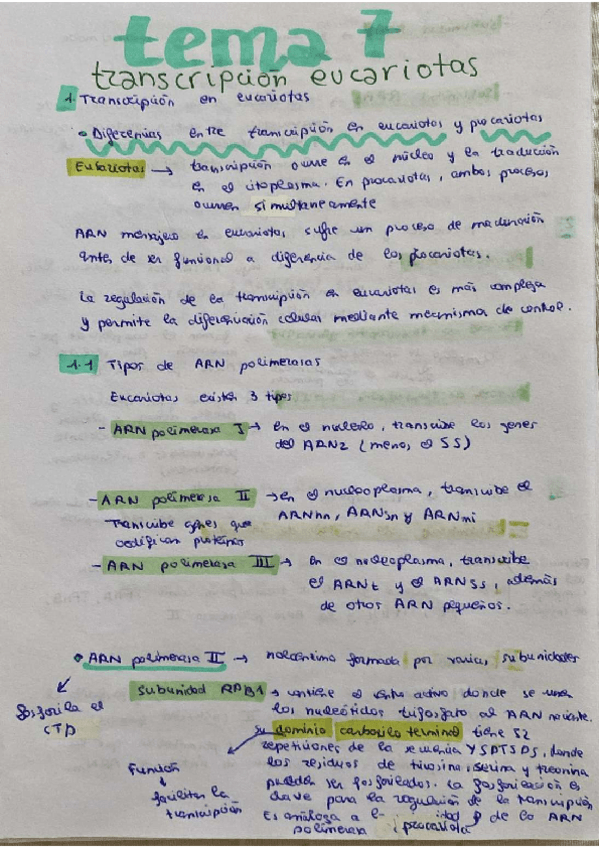 tema 7
transcripción eucariotas
1. Transcripción en eucariotas
• Diferencias entre transcripción en eucariotas y procariotas
Eukariotas → transcripción ocurre en el núcleo y la traducción
en el citoplasma. En procariotas, ambos procesos
ocurren simultaneamente
ARN mensajero en eucariotas sufre un proceso de maduración
antes de ser funcional a diferencia de los procariotas.
La regulación de la transcripción en eucariotas es más compleja
y permite la diferenciación celular mediante mecanismos de control.
1.1 Tipos de ARN polimerasas
Eucariotas existen 3 tipos
- ARN polimerasa I → en el nucleolo, transcribe los genes
del ARNr (menos el 5S)
- ARN polimerasa II → en el nucleoplasma, transcribe el
ARNhn, ARNsn y ARNmi
Transcribe genes que
codifican proteínas
- ARN polimerasa III → en el nucleoplasma, transcribe
el ARNt y el ARN5S, además
de otros ARN pequeños.
• ARN polimerasa II → holoenzima formada por varias subunidades
fosforila el
CTD
Subunidad RPB1 → contiene el centro activo donde se unen
los nucleótidos trifosfato al ARN naciente.
Su dominio carboxilo terminal tiene 52
repeticiones de la secuencia YSPTSPS, donde
los residuos de tirosina, serina y treonina
pueden ser fosforilados. La fosforilación es
clave para la regulación de la transcripción
Es análoga a de la ARN
polimerasa procariota
Función
facilitar la
transcripción